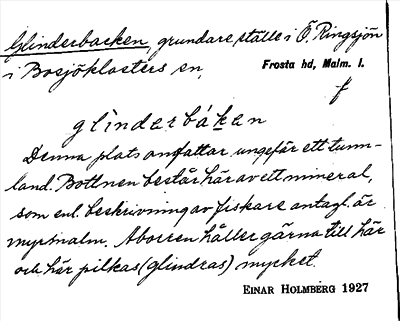 Glinderbacken, grundare ställe i Ö. Ringsjön
i Bosjöklosters sn,
Frosta hd, Malm. l.
f
glìnderbáken
Denna plats omfattar ungefär ett tunn-
land. Bottnen består här av ett mineral,
som enl. beskrivning av fiskare antagl. är
myrmalm. Aborren håller gärna till här
och här pilkas (glindras) mycket.
EINAR HOLMBERG 1927